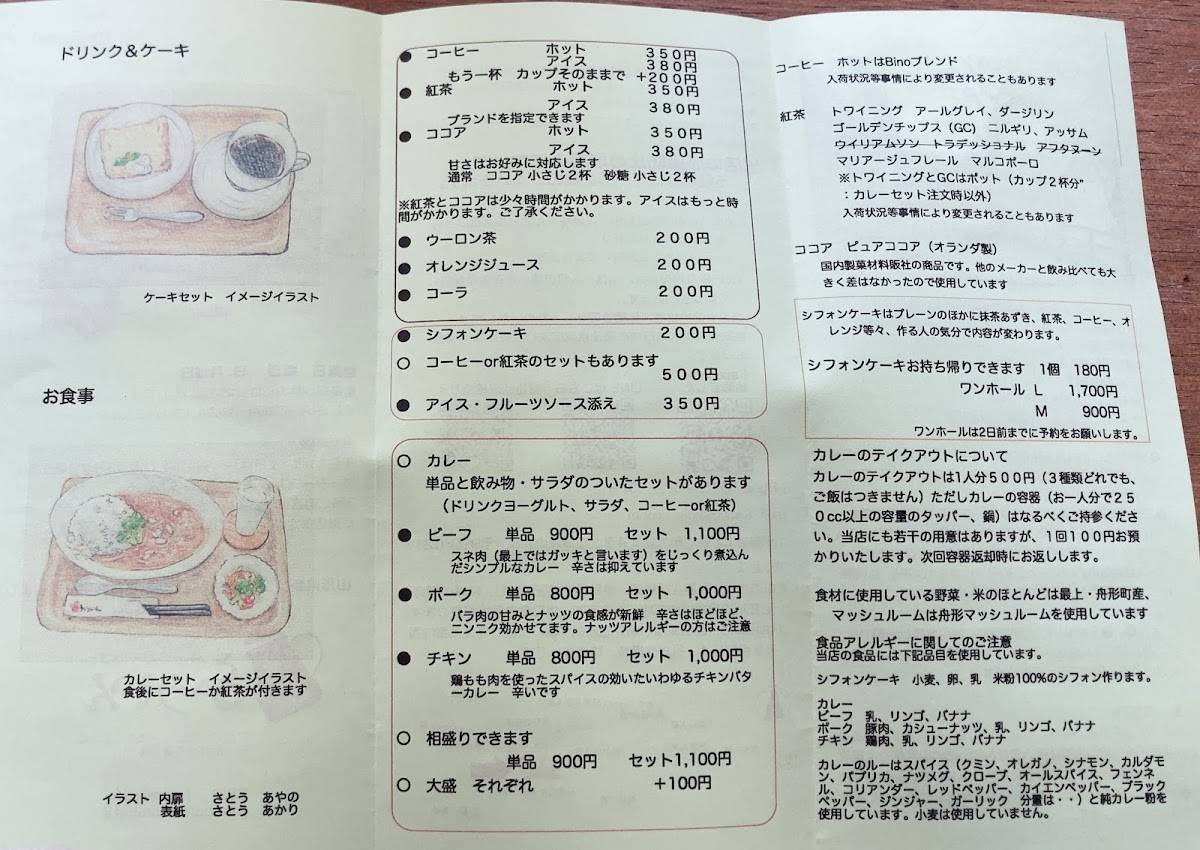 ドリンク＆ケーキ
ケーキセット　イメージイラスト
お食事
カレーセット　イメージイラスト
食後にコーヒーか紅茶が付きます
イラスト　内扉　　さとう　あやの
表紙　　さとう　あかり
● コーヒー　ホット　３５０円
アイス　３８０円
もう一杯　カップそのままで　＋２００円
● 紅茶　ホット　３５０円
アイス　３８０円
ブランドを指定できます
● ココア　ホット　３５０円
アイス　３８０円
甘さはお好みに対応します
通常　ココア 小さじ２杯　砂糖 小さじ２杯
※紅茶とココアは少々時間がかかります。アイスはもっと時
間がかかります。ご了承ください。
● ウーロン茶　２００円
● オレンジジュース　２００円
● コーラ　２００円
● シフォンケーキ　２００円
○ コーヒーor紅茶のセットもあります
５００円
● アイス・フルーツソース添え　３５０円
○ カレー
単品と飲み物・サラダのついたセットがあります
（ドリンクヨーグルト、サラダ、コーヒーor紅茶）
● ビーフ　単品　900円　セット　1,100円
スネ肉（最上ではガッキと言います）をじっくり煮込ん
だシンプルなカレー　辛さは抑えています
● ポーク　単品　800円　セット　1,000円
バラ肉の甘みとナッツの食感が新鮮　辛さはほどほど、
ニンニク効かせてます。ナッツアレルギーの方はご注意
● チキン　単品　800円　セット　1,000円
鶏もも肉を使ったスパイスの効いたいわゆるチキンバタ
ーカレー　辛いです
○ 相盛りできます
単品　900円　セット1,100円
○ 大盛　それぞれ　＋100円
コーヒー　ホットはBinoブレンド
入荷状況等事情により変更されることもあります
紅茶　トワイニング　アールグレイ、ダージリン
ゴールデンチップス（GC）ニルギリ、アッサム
ウイリアムソン　トラデッショナル　アフタヌーン
マリアージュフレール　マルコポーロ
※トワイニングとGCはポット（カップ２杯分”
：カレーセット注文時以外）
入荷状況等事情により変更されることもあります
ココア　ピュアココア（オランダ製）
国内製菓材料販社の商品です。他のメーカーと飲み比べても大
きく差はなかったので使用しています
シフォンケーキはプレーンのほかに抹茶あずき、紅茶、コーヒー、オ
レンジ等々、作る人の気分で内容が変わります。
シフォンケーキお持ち帰りできます　１個　180円
ワンホール　L　1,700円
M　900円
ワンホールは2日前までに予約をお願いします。
カレーのテイクアウトについて
カレーのテイクアウトは１人分５００円（３種類どれでも、
ご飯はつきません）ただしカレーの容器（お一人分で２５
０cc以上の容量のタッパー、鍋）はなるべくご持参くださ
い。当店にも若干の用意はありますが、１回１００円お預
かりいたします。次回容器返却時にお返しします。
食材に使用している野菜・米のほとんどは最上・舟形町産、
マッシュルームは舟形マッシュルームを使用しています
食品アレルギーに関してのご注意
当店の食品には下記品目を使用しています。
シフォンケーキ　小麦、卵、乳　米粉100%のシフォン作ります。
カレー
ビーフ　乳、リンゴ、バナナ
ポーク　豚肉、カシューナッツ、乳、リンゴ、バナナ
チキン　鶏肉、乳、リンゴ、バナナ
カレーのルーはスパイス（クミン、オレガノ、シナモン、カルダモ
ン、パプリカ、ナツメグ、クローブ、オールスパイス、フェンネ
ル、コリアンダー、レッドペッパー、カイエンペッパー、ブラック
ペッパー、ジンジャー、ガーリック　分量は・・）と純カレー粉を
使用しています。小麦は使用していません。